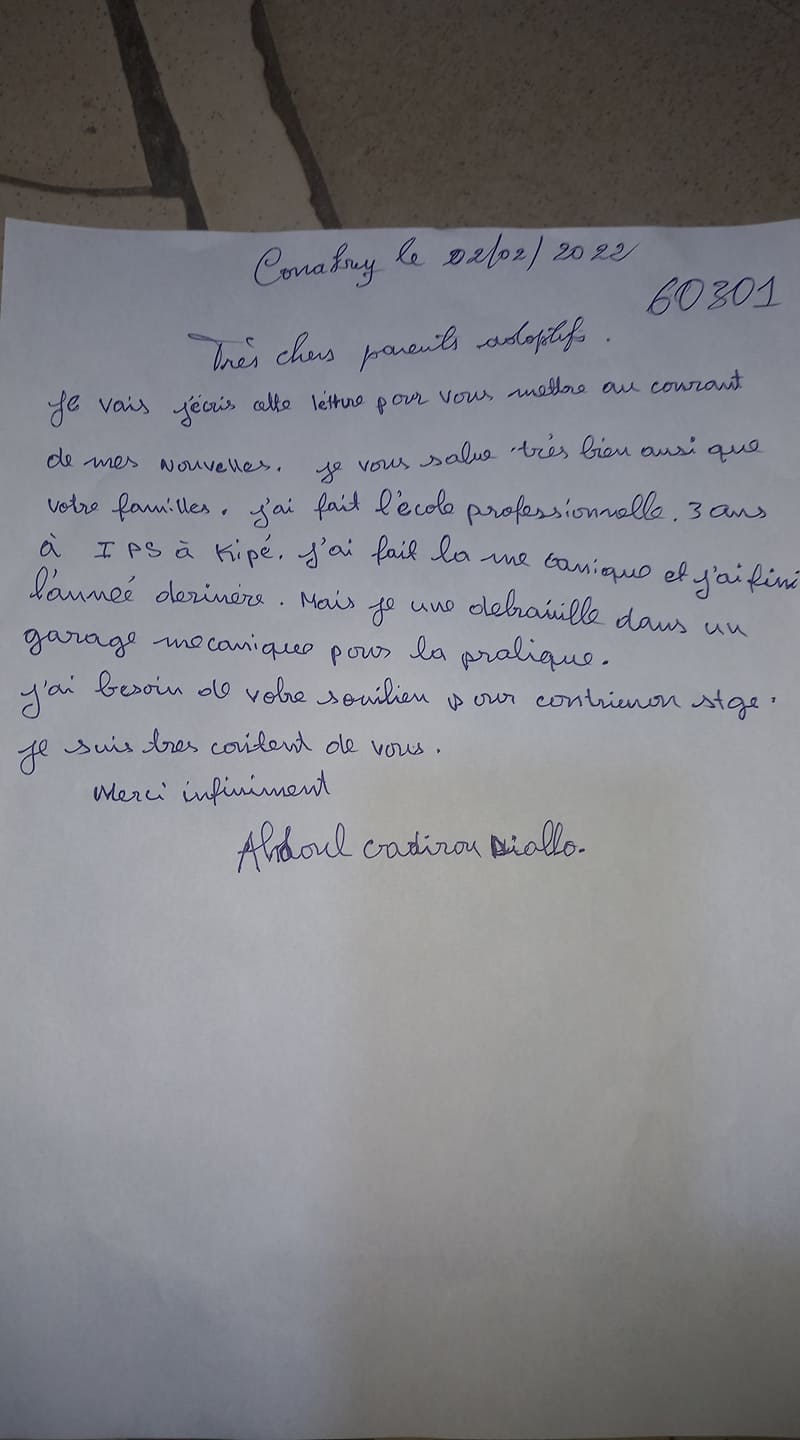 Conakry le 02/02/2022
60301
Très chers parents adoptifs.
Je vais j'écris cette letture pour vous mettre au courant
de mes nouvelles. je vous salue très bien ausi que
votre familles. j'ai fait l'école professionnelle. 3 ans
à IPS à Kipé. j'ai fait la me canique et j'ai fini
l'anneé derinère. Mais je une debraiulle dans un
garage mecanique pour la pratique.
j'ai besoin de votre soutien pour stge.
je suis tres content de vous.
Merci infiniment
Abdoul Gadirou Diallo.